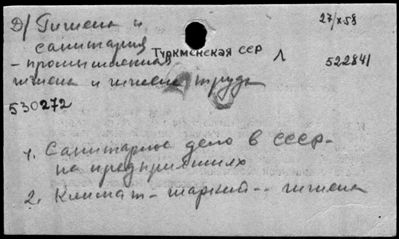 Д/ Гигиена и
санитария
- промышленная
гигиена и гигиена труда
Туркменская ССР
Л
27/X 58
522841
530272
1. Санитарное дело в СССР -
на предприятиях
2. Климат - жаркий -- гигиена